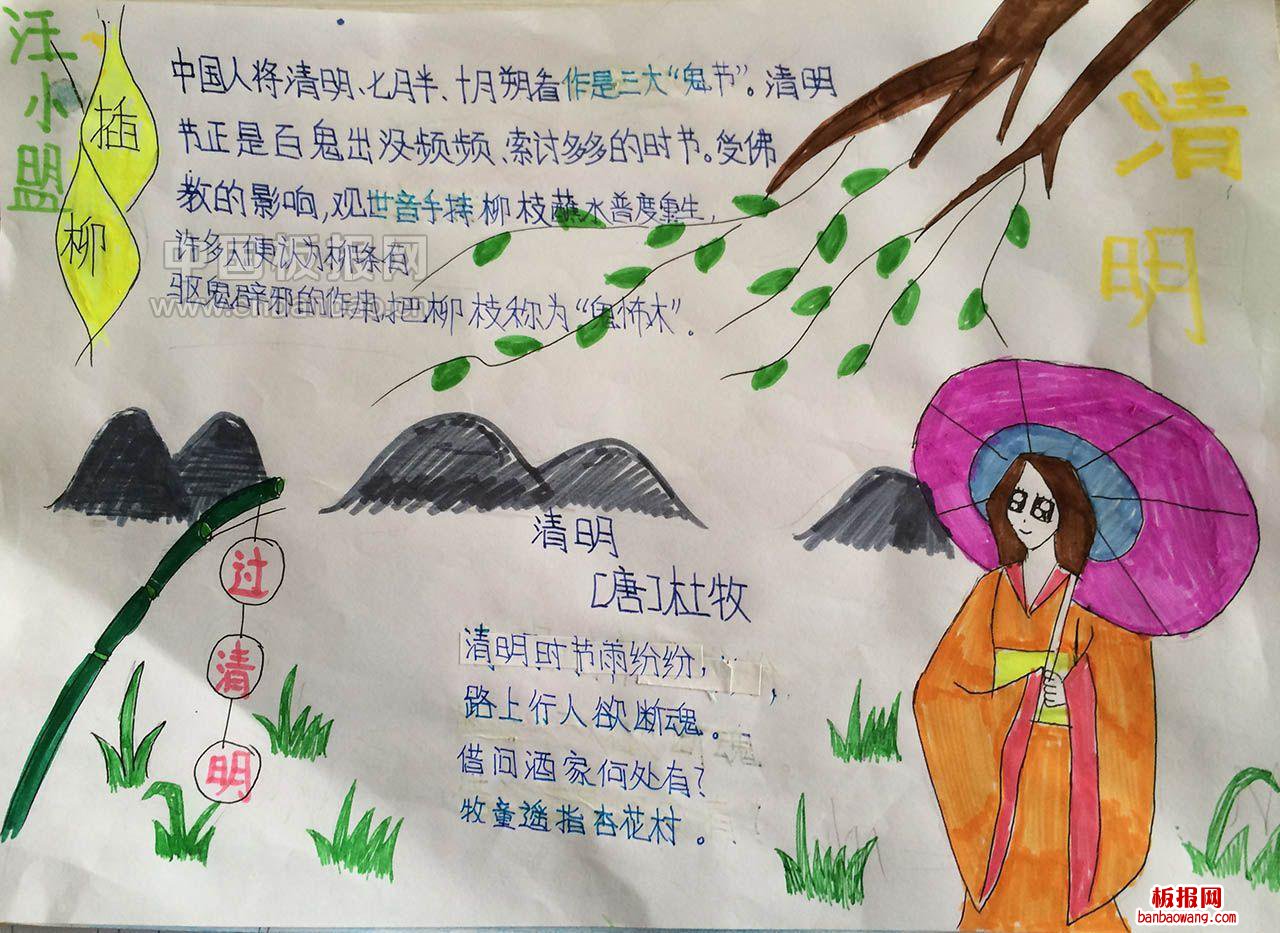 汪小盟
插柳
清明
中国人将清明、七月半、十月朔看作是三大“鬼节”。清明
节正是百鬼出没频频、索讨多多的时节。受佛
教的影响,观世音手持柳枝蘸水普度众生,
许多人便认为柳条有
驱鬼辟邪的作用,把柳枝称为“鬼怖木”.
中国板报网
过
清
明
清明
[唐]杜牧
清明时节雨纷纷,
路上行人欲断魂。
借问酒家何处有?
牧童遥指杏花村。
板报网
banbaowang.com